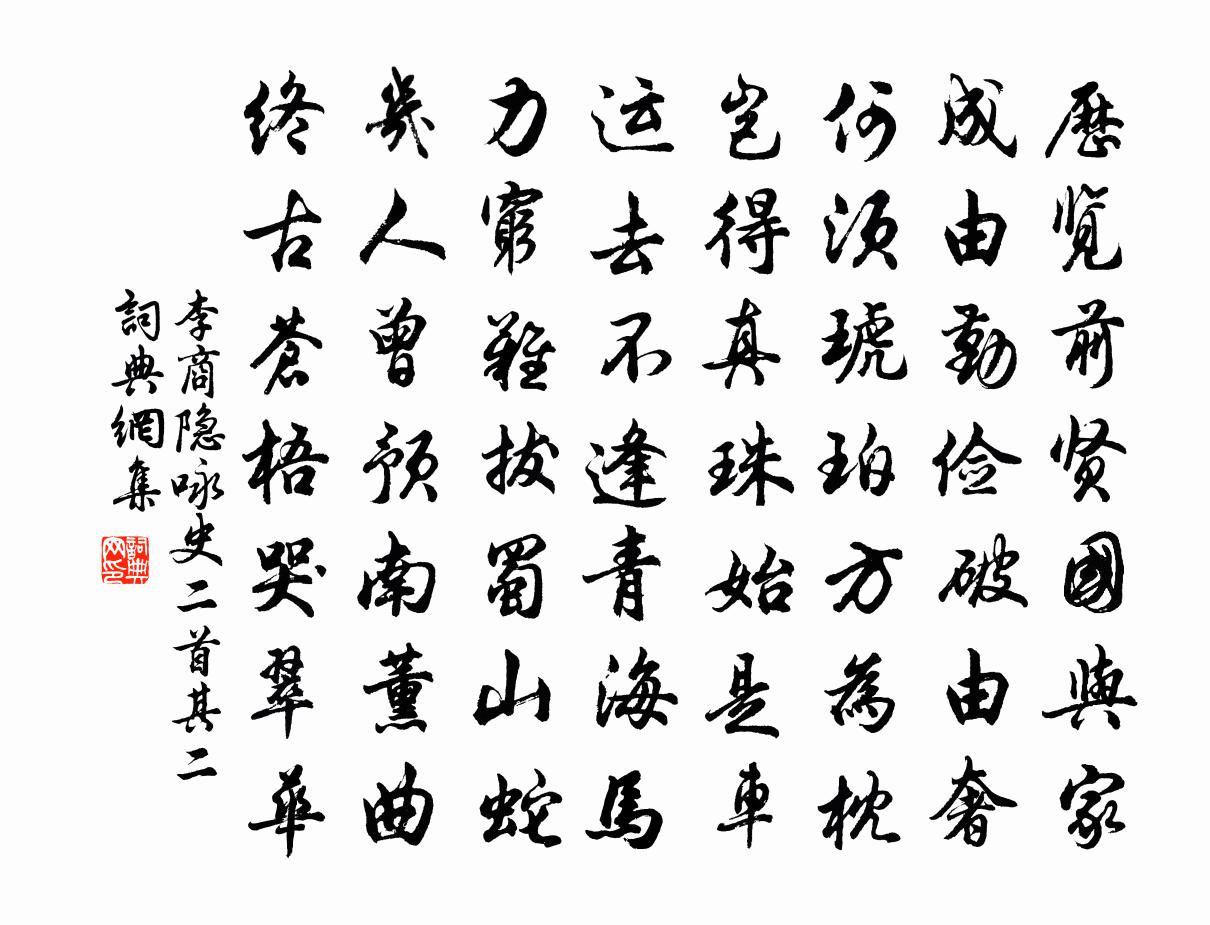 歷览前贤國與家
成由勤俭破由奢
何须琥珀方為枕
岂得真珠始是車
运去不逢青海馬
力窮難拔蜀山蛇
幾人曾预南薰曲
终古蒼梧哭翠華
李商隐咏史二首其二
詞典網集
詞典网印